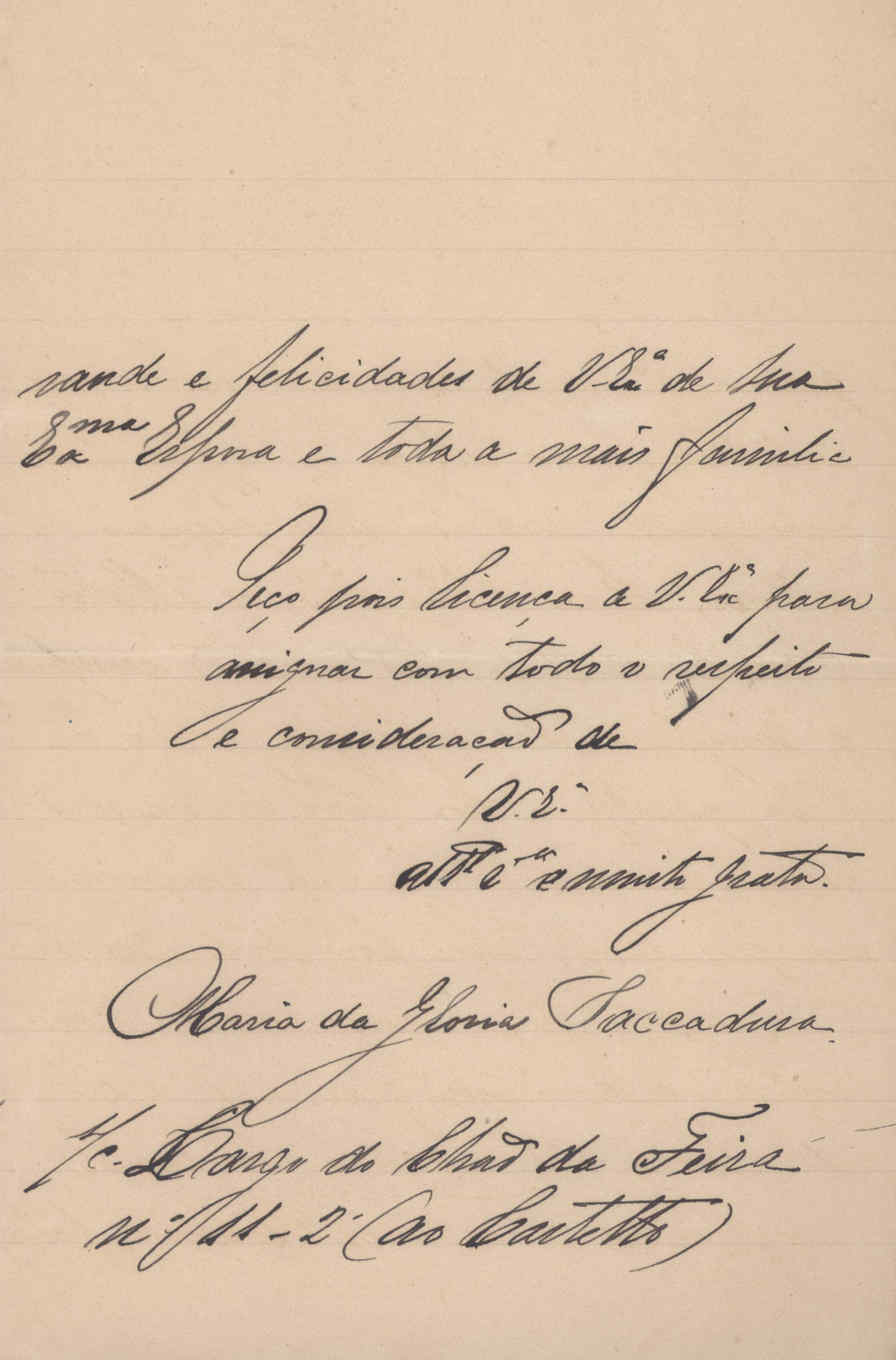 saude e felicidades de V. Exª de sua
Exma Esposa e toda a mais familia
Peço pois licença a V. Exª para
assignar com todo o respeito
e consideração de
V. E.ª
attª vª e muito grata.
Maria da Gloria Saccadura.
Largo do Chaõ da Feira
nº 11 - 2º (ao Castello)